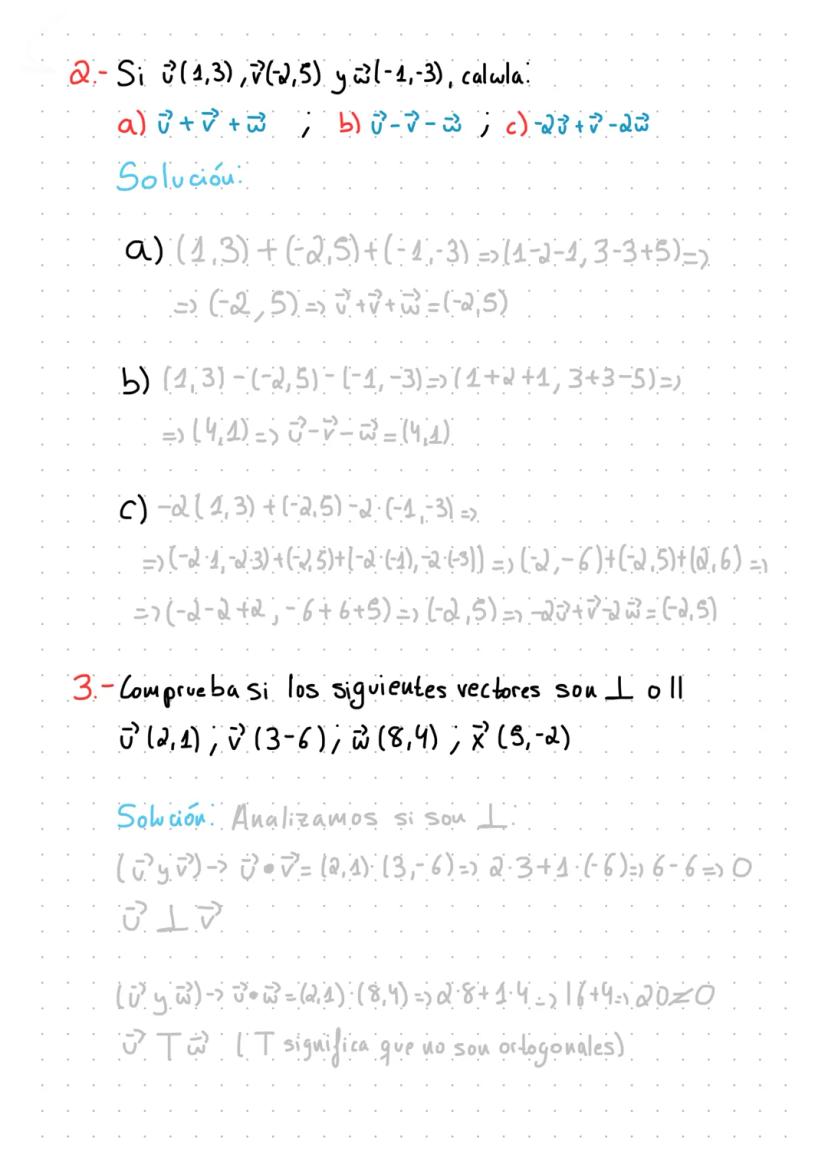 2.- Si u⃗(1,3), v⃗(-2,5) y w⃗(-1,-3), calcula:
a) u⃗ + v⃗ + w⃗ ; b) u⃗ - v⃗ - w⃗ ; c) -2u⃗ + v⃗ - 2w⃗
Solución:
a) (1,3) + (-2,5) + (-1,-3) => (1-2-1, 3-3+5) =>
=> (-2,5) => u⃗ + v⃗ + w⃗ = (-2,5)
b) (1,3) - (-2,5) - (-1,-3) => (1+2+1, 3+3-5) =>
=> (4,1) => u⃗ - v⃗ - w⃗ = (4,1)
c) -2(1,3) + (-2,5) - 2·(-1,-3) =>
=> (-2·1,-2·3) + (-2,5) + (-2·(-1),-2·(-3)) => (-2,-6) + (-2,5) + (2,6) =>
=> (-2-2+2, -6+6+5) => (-2,5) => -2u⃗ + v⃗ - 2w⃗ = (-2,5)
3.- Comprueba si los siguientes vectores son ⊥ o ||
u⃗(2,1) ; v⃗(3-6) ; w⃗(8,4) ; x⃗(5,-2)
Solución: Analizamos si son ⊥:
(u⃗ y v⃗) -> u⃗ • v⃗ = (2,1)·(3,-6) => 2·3+1·(-6) => 6-6 => 0
u⃗ ⊥ v⃗
(u⃗ y w⃗) -> u⃗ • w⃗ = (2,1)·(8,4) => 2·8+1·4 => 16+4 => 20≠0
u⃗ T w⃗ (T significa que no son ortogonales)